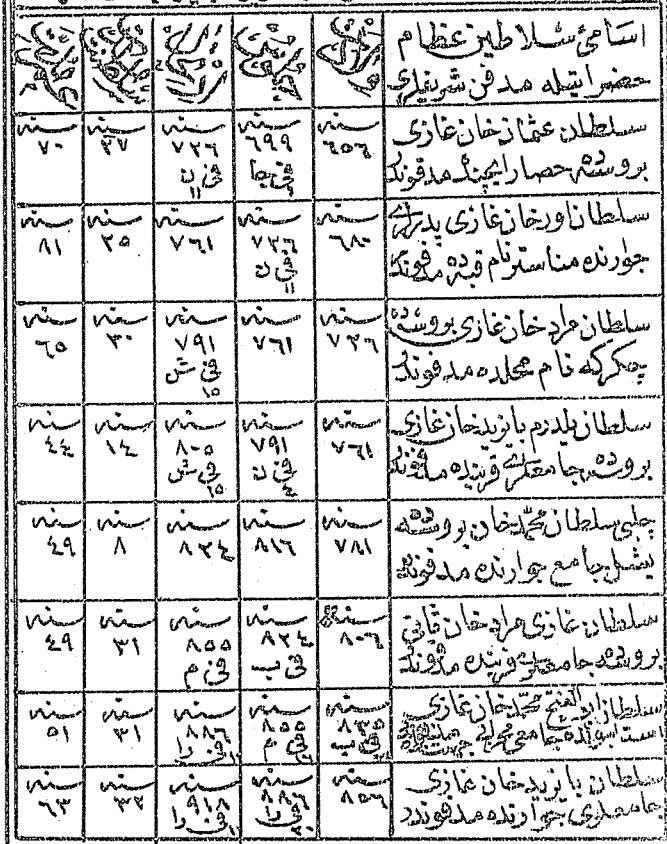 اسامئ سلاطين عظام
حضراتيله مدفن شريفلرى
سلطان عثمان خان غازى
بروسه‌ده حصار ايچنده مدفوندر
سنه ٦٥٦
سنه ٦٩٩ فى جا
سنه ٧٢٦ فى ن ١١
سنه ٢٧
سنه ٧٠
سلطان اورخان غازى پدرلرى
جوارنده مناستر نام قبه‌ده مدفوندر
سنه ٦٨٠
سنه ٧٢٦ فى ن ١١
سنه ٧٦١
سنه ٣٥
سنه ٨١
سلطان مراد خان غازى بروسه‌ده
چكركه نام محلده مدفوندر
سنه ٧٢٦
سنه ٧٦١
سنه ٧٩١ فى ش ١٥
سنه ٣٠
سنه ٦٥
سلطان يلدرم بايزيد خان غازى
بروسه‌ده جامعلرى قربنده مدفوندر
سنه ٧٦١
سنه ٧٩١ فى ن ٤
سنه ٨٠٥ فى ش ١٥
سنه ١٤
سنه ٤٤
چلبى سلطان محمد خان بروسه‌ده
يشل جامع جوارنده مدفوندر
سنه ٧٨١
سنه ٨١٦
سنه ٨٢٤
سنه ٨
سنه ٤٩
سلطان غازى مراد خان ثانى
بروسه‌ده جامعلرى قربنده مدفوندر
سنه ٨٠٦
سنه ٨٢٤ فى ب
سنه ٨٥٥ فى م
سنه ٣١
سنه ٤٩
سلطان ابو الفتح محمد خان غازى
سنه ٨٣٥ فى ب
سنه ٨٥٥ فى م
سنه ٨٨٦ فى را
سنه ٣١
سنه ٥١
سلطان بايزيد خان غازى
جامعلرى جوارنده مدفوندر
سنه ٨٥٦
سنه ٨٨٦ فى را
سنه ٩١٨ فى را
سنه ٣٢
سنه ٦٣